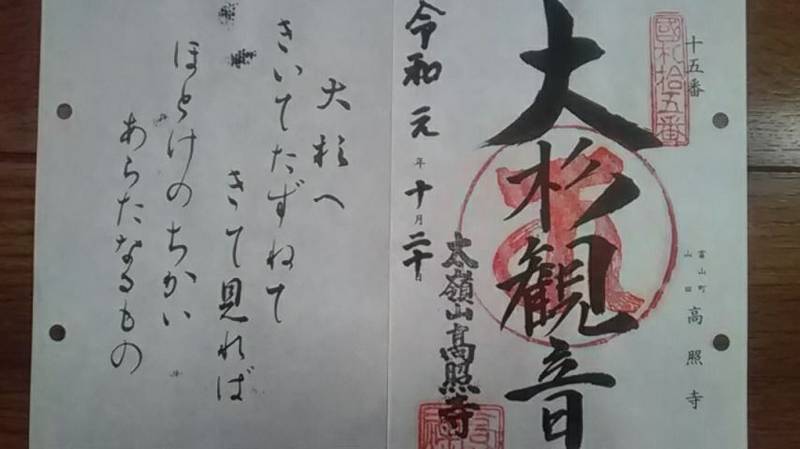 十五番
國札拾五番
富山町
山田
高照寺
大杉観音
太嶺山高照寺
令和元年十月二十日
大杉へ
きいてたずねて
きて見れば
ほとけのちかい
あらたなるもの